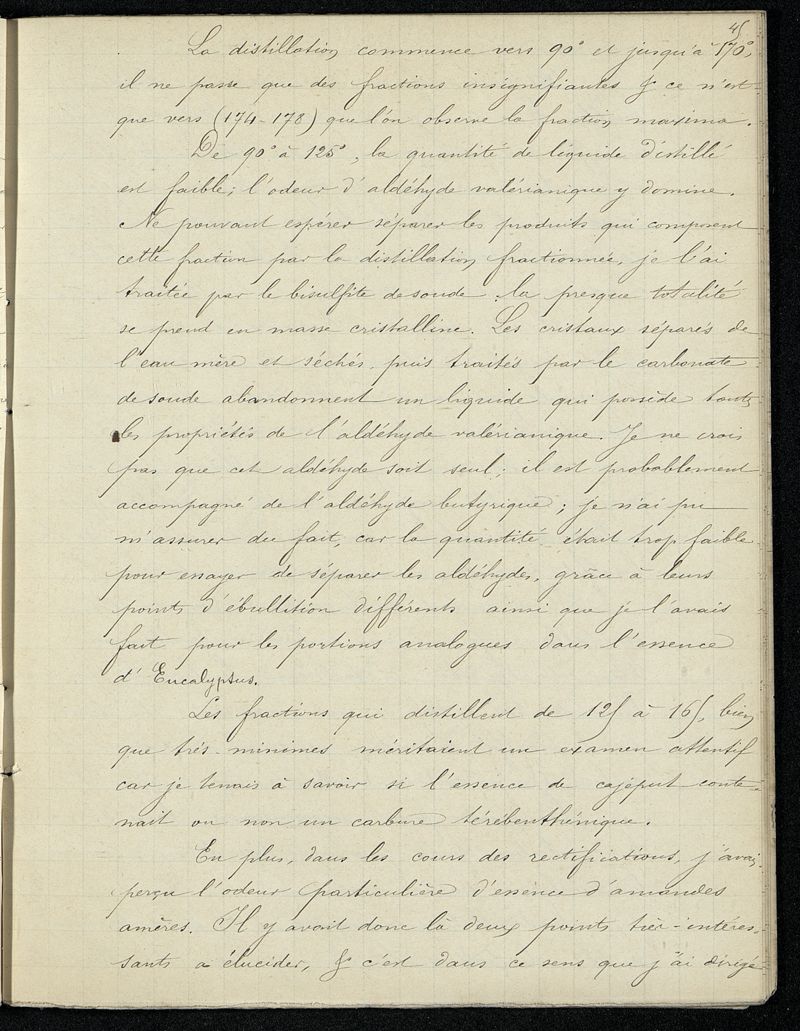 45
La distillation commence vers 90° et jusqu'à 170°,
il ne passe que des fractions insignifiantes & ce n'est
que vers (174-178) que l'on observe la fraction maxima.
De 90° à 125°, la quantité de liquide distillé
est faible; l'odeur d'aldéhyde valérianique y domine.
Ne pouvant espérer séparer les produits qui composent
cette fraction par la distillation fractionnée, je l'ai
traitée par le bisulfite de soude. la presque totalité
se prend en masse cristalline. Les cristaux séparés de
l'eau mère et séchés, puis traités par le carbonate
de soude abandonnent un liquide qui possède toutes
les propriétés de l'aldéhyde valérianique. Je ne crois
pas que cet aldéhyde soit seul; il est probablement
accompagné de l'aldéhyde butyrique; je n'ai pu
m'assurer du fait, car la quantité était trop faible
pour essayer de séparer les aldéhydes, grâce à leurs
points d'ébullition différents ainsi que je l'avais
fait pour les portions analogues dans l'essence
d'Eucalyptus.
Les fractions qui distillent de 125 à 165, bien
que très-minimes méritaient un examen attentif
car je tenais à savoir si l'essence de cajeput conte-
nait ou non un carbure térébenthénique.
En plus, dans les cours des rectifications, j'avais
perçu l'odeur particulière d'essence d'amandes
amères. Il y avait donc là deux points très-intéres-
sants a élucider, & c'est dans ce sens que j'ai dirigé